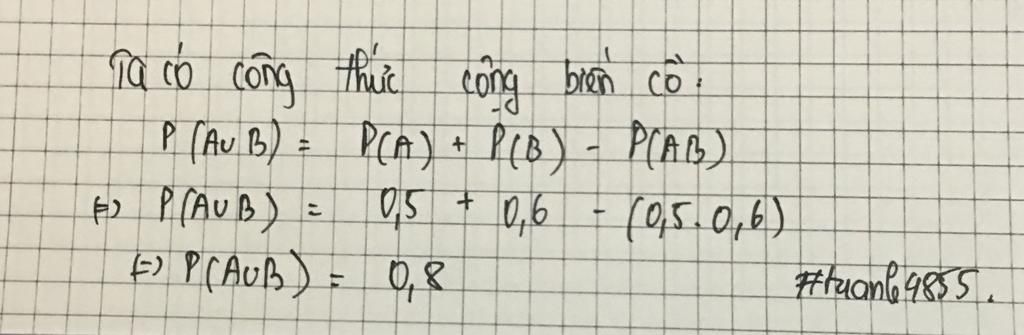 Ta có công thức cộng biến cố:
P(A∪B) = P(A) + P(B) - P(AB)
⇔ P(A∪B) = 0,5 + 0,6 - (0,5.0,6)
⇔ P(A∪B) = 0,8
#tuanle9855.